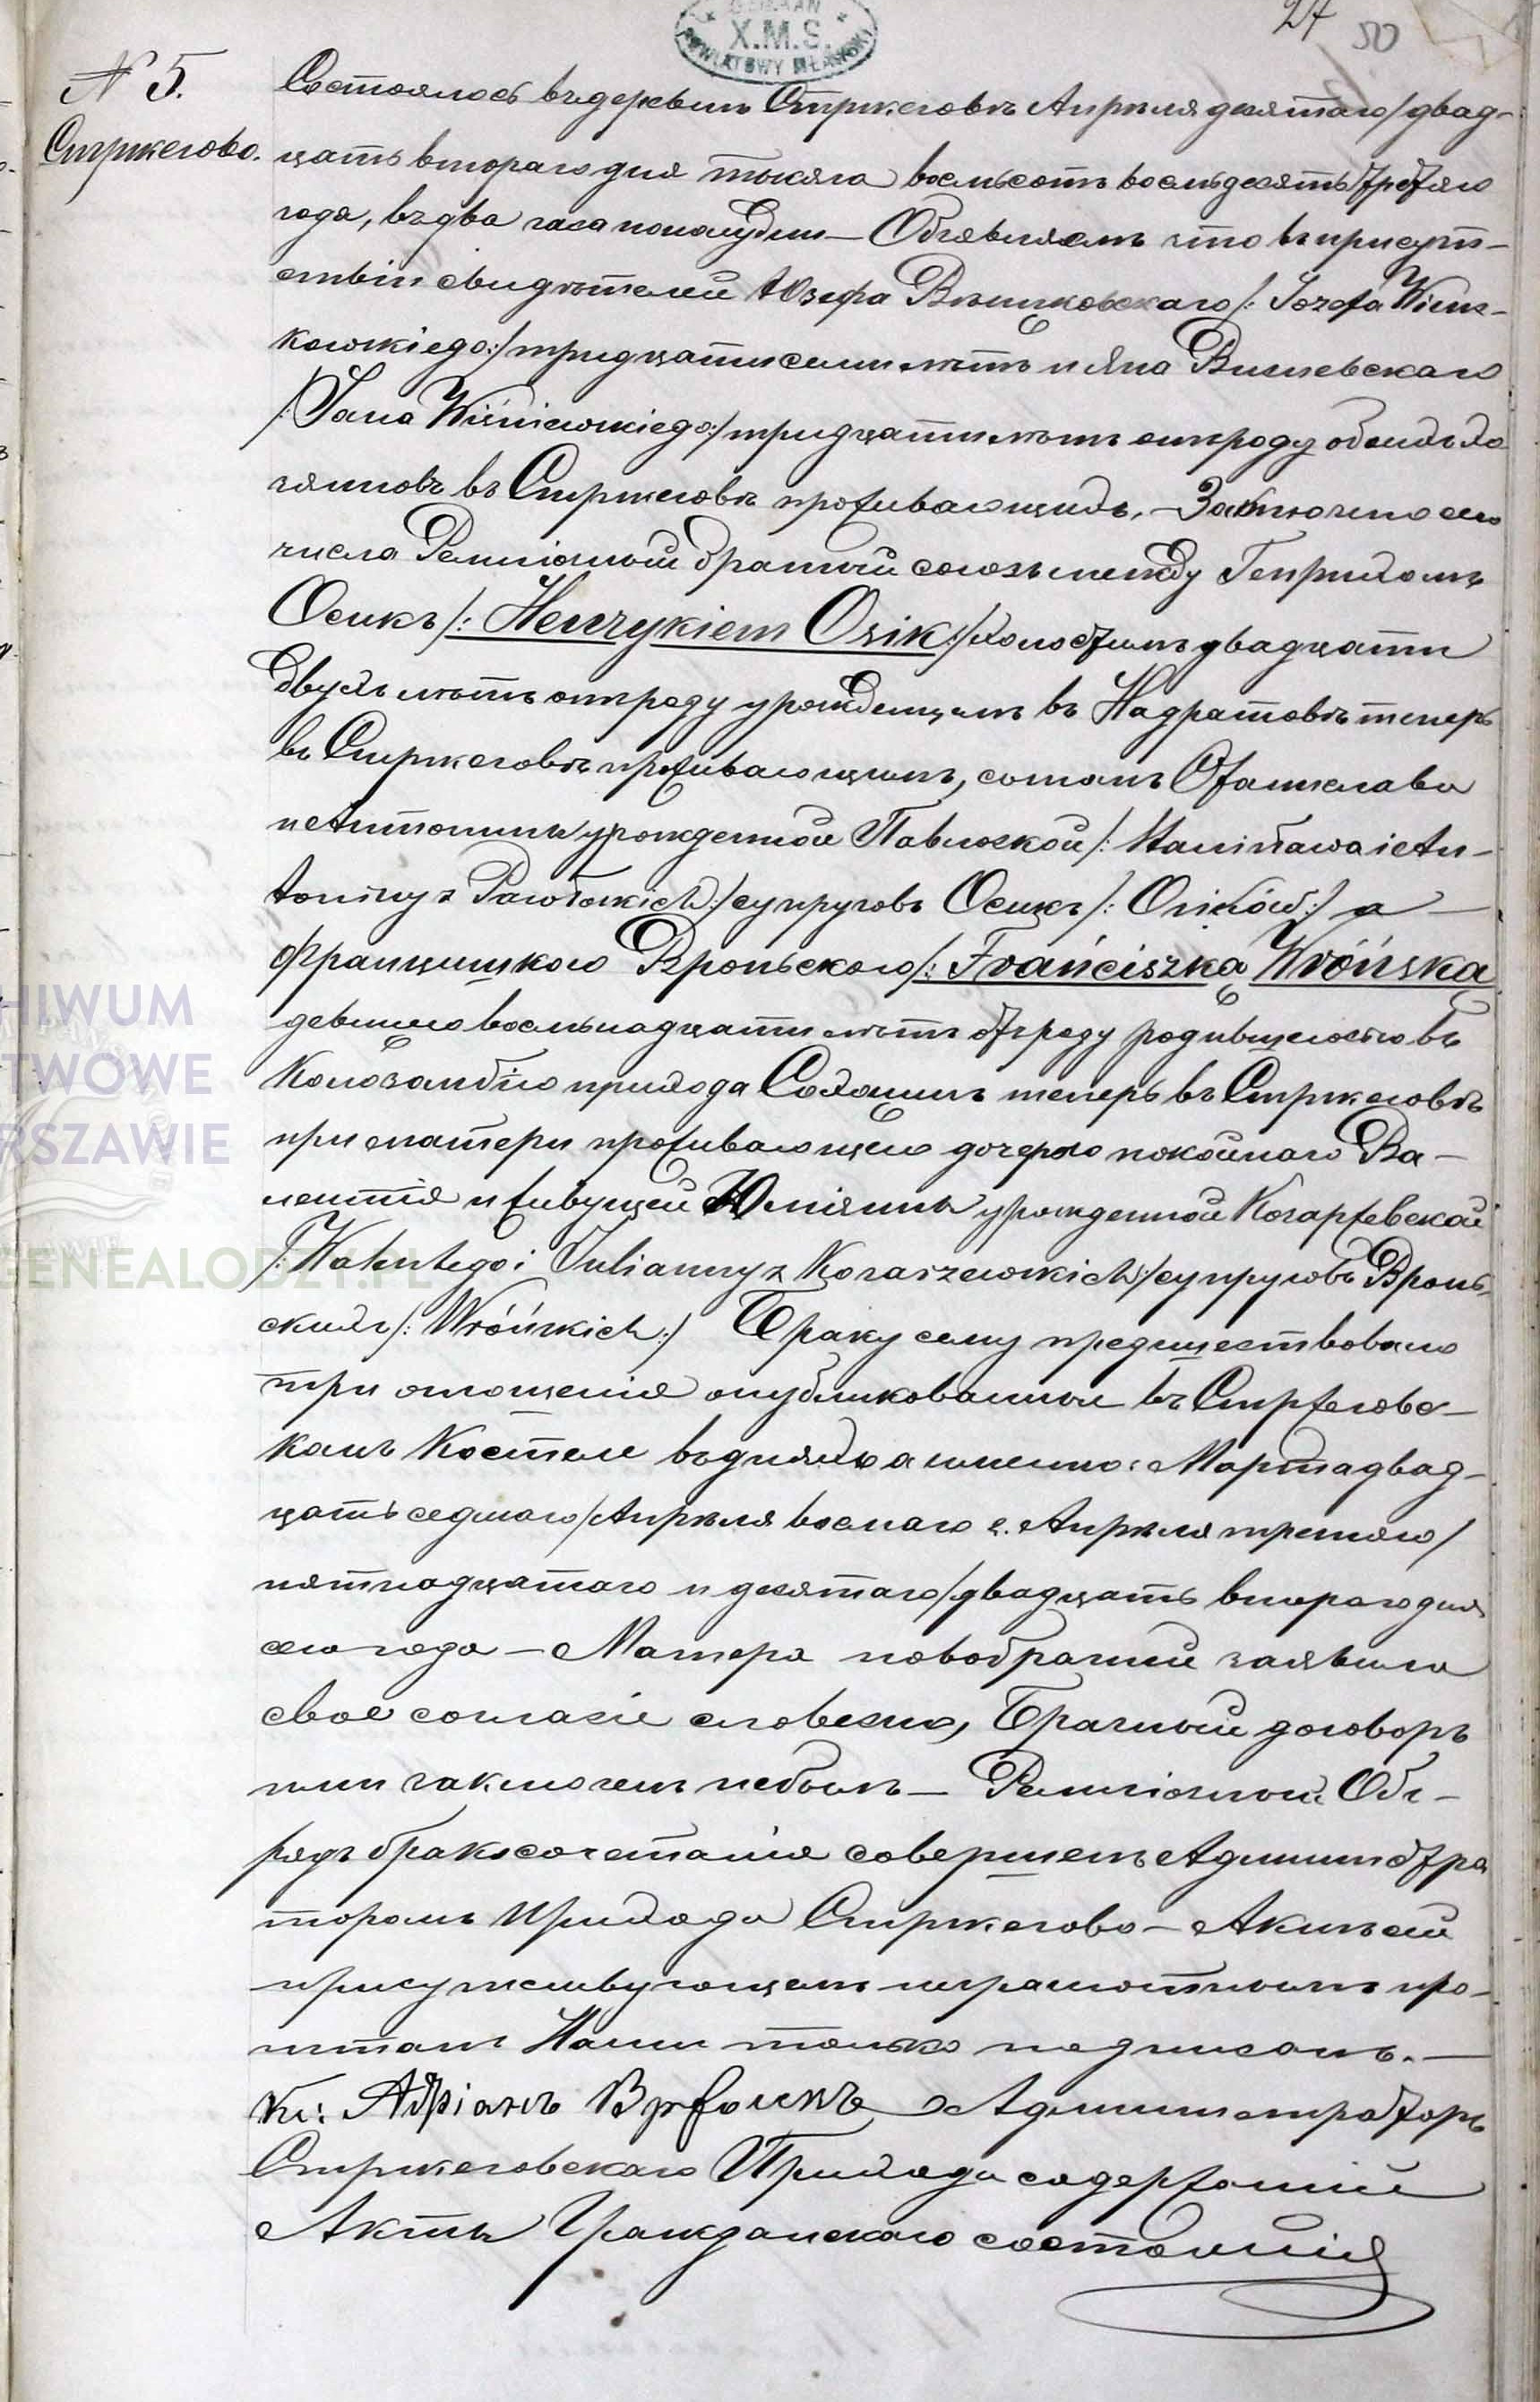 DZIEKAN
X.M.S.
POWIATOWY MŁAWSKI
27 50
N 5.
Стржегово.
Состоялось въ деревнѣ Стржеговѣ Апрѣля десятаго/двад-
цать втораго дня тысяча восемьсотъ восемьдесятъ третяго
года, въ два часа пополудни — Объявляемъ что въ присут-
ствіи свидѣтелей Юзефа Вѣшковскаго /: Józefa Wiesz-
kowskiego:/ тридцати семи лѣтъ и Яна Вишневскаго
/: Jana Wiśniewskiego:/ тридцати лѣтъ отъ роду обоихъ хо
зяиновъ въ Стржеговѣ проживающихъ, — Заключено сего
числа Религіозный брачный союзъ между Генрихомъ
Осикъ /: Henrykiem Osik:/ холостымъ двадцати
двухъ лѣтъ отъ роду урожденцемъ въ Надратовѣ теперь
въ Стржеговѣ проживающимъ, сыномъ Станислава
и Антонины урожденной Павлоской /: Stanisława i An-
toniny z Pawłoskich:/ супруговъ Осикъ /: Osików:/ а
Францишкою Вроньскою /: Franciszka Wrońska
девицею восемнадцати лѣтъ отъ роду родившеюся въ
Колозомбѣ прихода Сохоцинъ теперь въ Стржеговѣ
при матери проживающею дочерью покойнаго Ва-
лентія и живущей Юліянны урожденной Козаржевской
/: Walentego i Julianny z Kozarzewskich:/ супруговъ Вронь-
скихъ /: Wrońskich:/ Браку сему предшествовало
три оглошенія опубликованныя въ Стржеговс-
комъ Костеле въ дняхъ а именно: Марта двад-
цать седмаго/Апрѣля восмаго ч. Апрѣля третяго/
пятнадцатаго и десятаго/двадцать втораго дня
сего года — Матера новобрачней заявила
свое согласіе словезно, Брачный договоръ
ими заключенъ небылъ — Религіозный Об-
рядъ бракосочетанія совершенъ Администра
торомъ Прихода Стржегово — Актъ сей
присутствующемъ неграмотнымъ про-
читанъ Нами только подписанъ. —
Кс: Адріанъ Администраторъ
Стржеговскаго Прихода содержащій
Акты Гражданскаго состоянія
HIWUM
TWOWE
RSZAWIE
GENEALODZY.PL